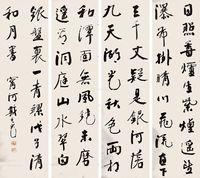 日照香爐生紫煙遙望
瀑布掛晴川飛流直下
三千丈疑是銀河落
九天湖光秋色兩相
和潭面無風鏡未磨
遙望洞庭山水翠白
銀盤裏一青螺戊子清
和月書